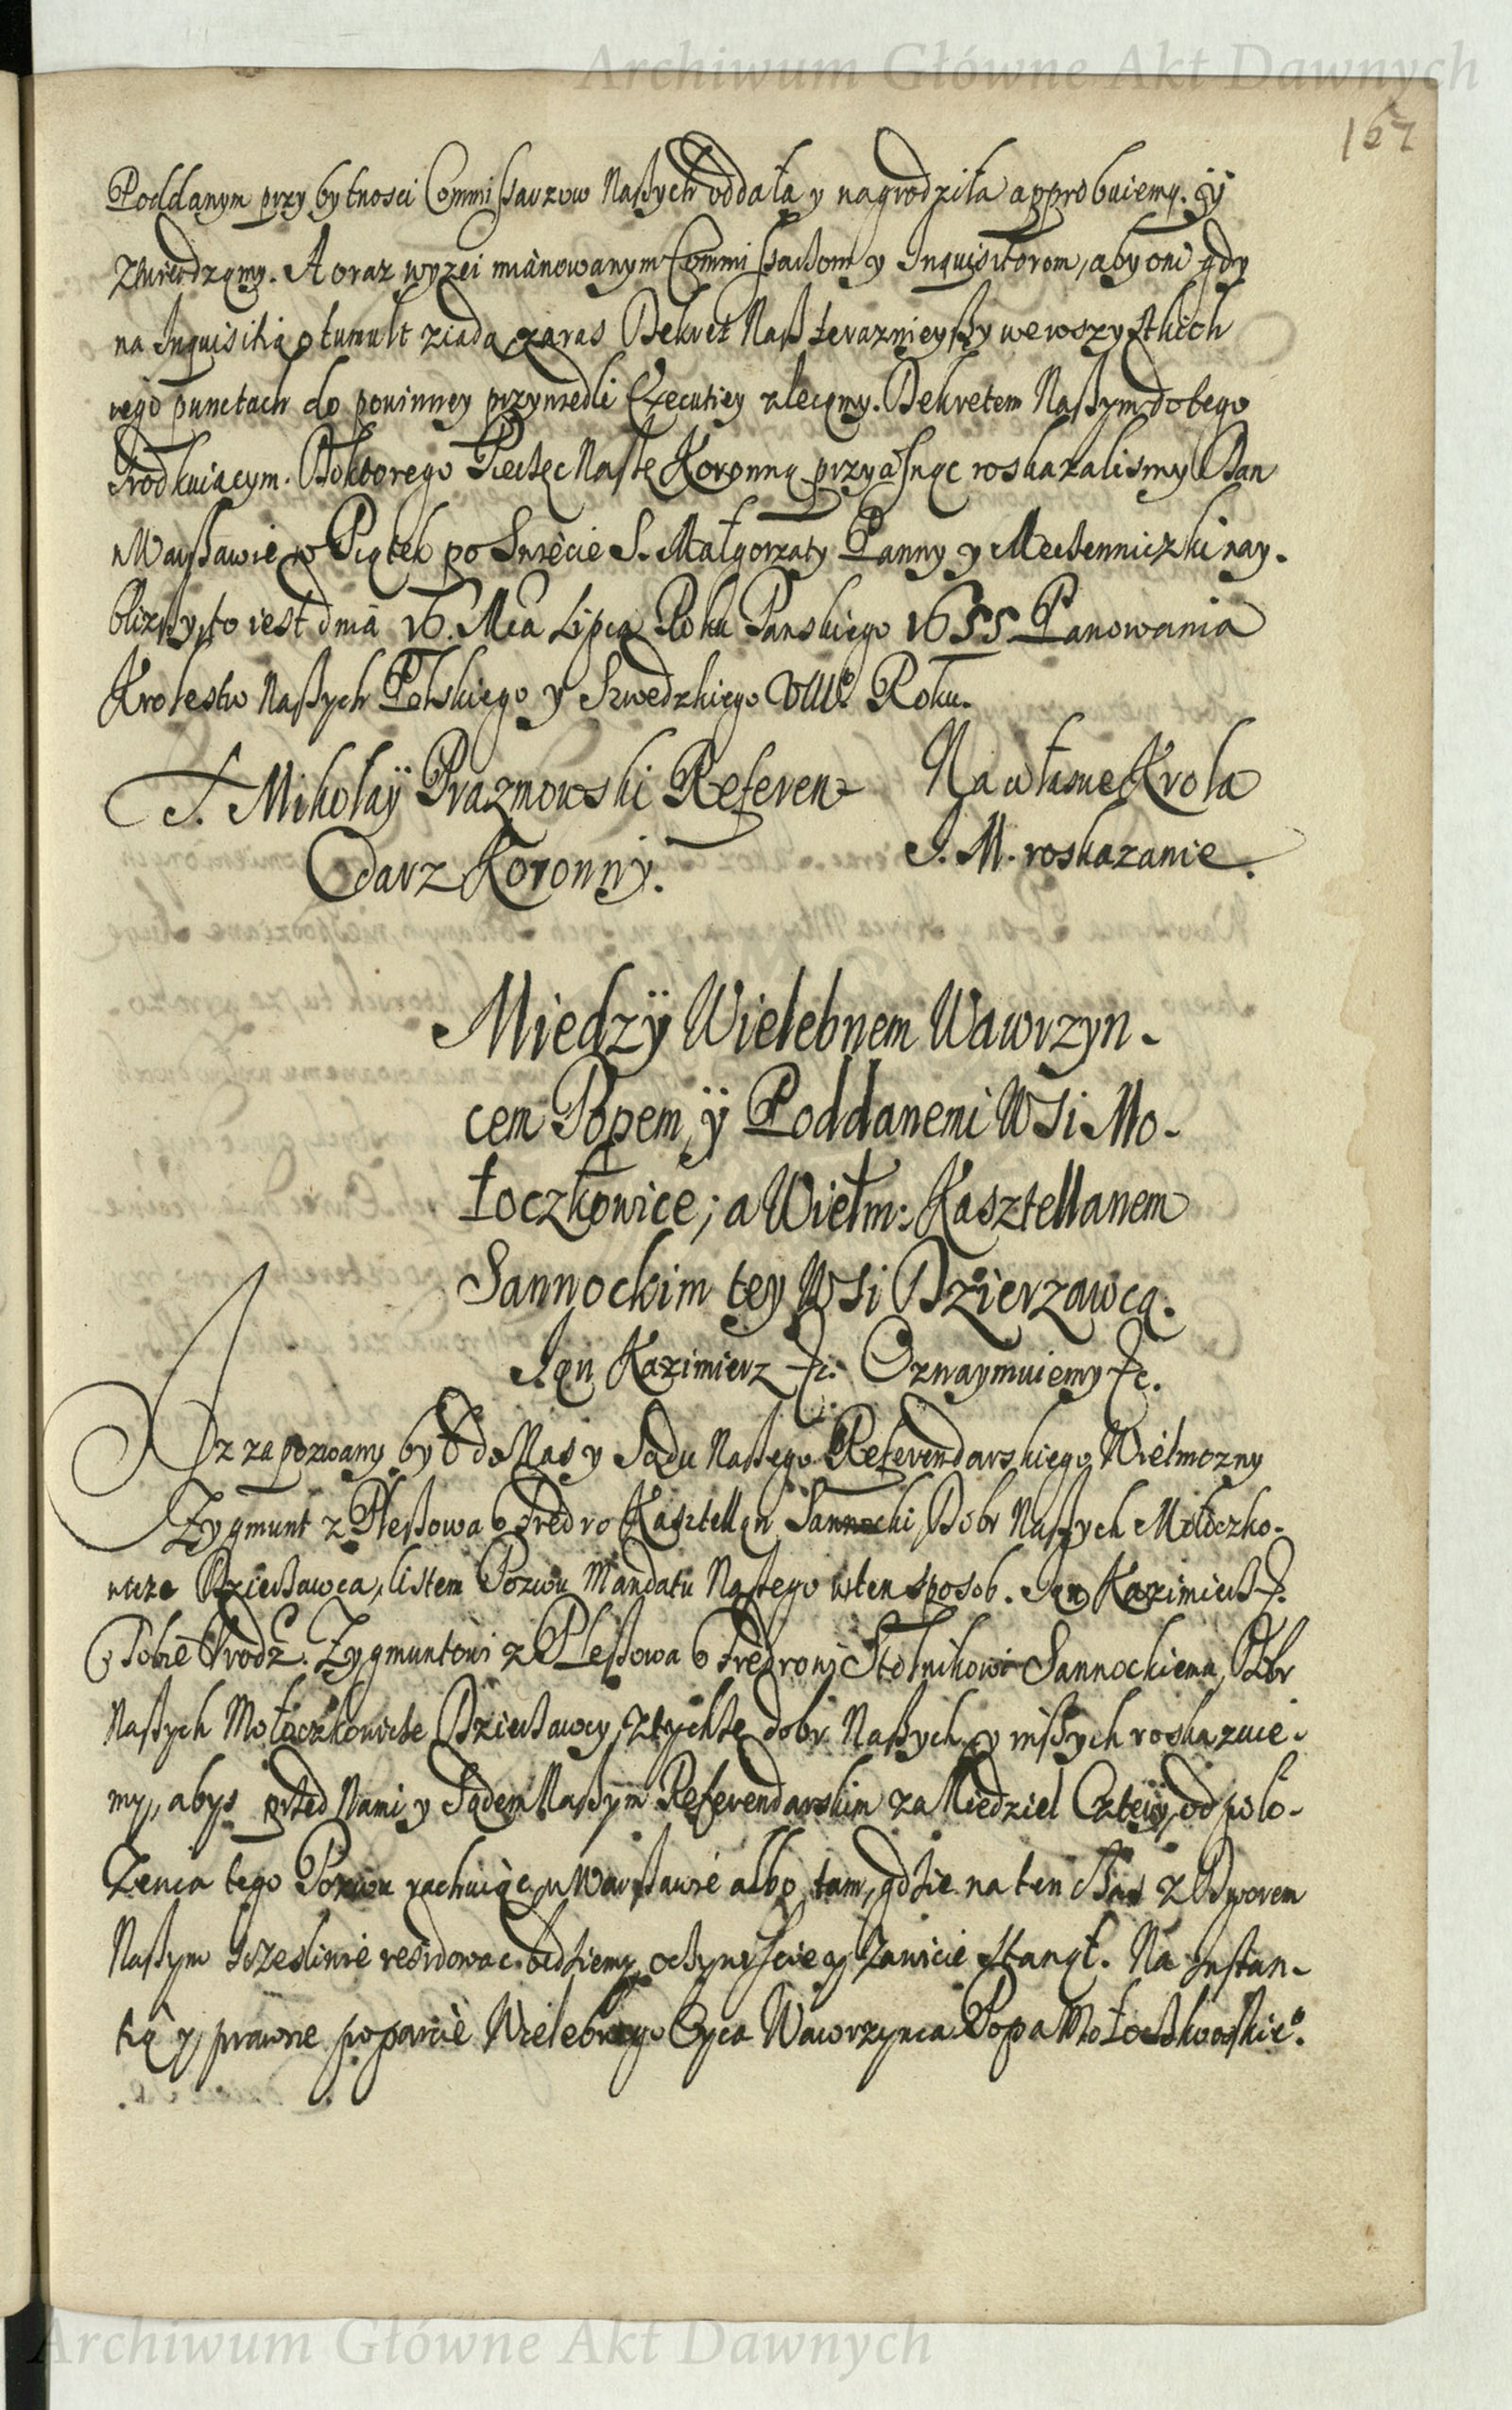 Archiwum Główne Akt Dawnych
167
Poddanym przy bytnosci Commissarzow Naßych oddała y nagrodziła approbuiemy. ÿ
zwierdzamy. A oraz wyzei mianowanym Commissarßom y Inquisitorom, aby oni gdy
na Inquisitią o tumult ziadą zaras Dekret Naß teraznieyßy we wszystkich
iego punctach do powinney przywiedli Executiey zlecamy. Dekretem Naßym do tego
srodkuiącym. Do ktorego Pieczęc Naßę Koronną przycisnąc roskazalismy Dan
w Warßawie w Piątek po Swięcie S. Małgorzaty Panny y Męczenniczki nay-
blizßy, to iest dnia 16. Mca Lipca Roku Panskiego 1655 Panowania
Krolestw Naßych Polskiego y Szwedzkiego VIIº. Roku.
X. Mikołaÿ Prazmowski Referen-
darz Koronny.
Na własne Krola
J. M. roskazanie.
Miedzÿ Wielebnem Wawrzyn-
cem Popem, ÿ Poddanemi Wsi Mo-
łoczkowice; a Wielm: Kasztellanem
Sannockim tey Wsi Dzierzawcą.
Jan Kazimierz &c. Oznaymuiemy &c.
Iz zapozwany był do Nas y Sądu Naßego Referendarskiego Wielmozny
Zygmunt z Pleßowa Fredro Kasztellan Sannocki, Dobr Naßych Mołoczko-
wicze Dzierßawca, listem Pozwu Mandatu Naßego w ten sposob. Jan Kazimierß &.
Tobie Vrodz. Zygmuntowi z Pleßowa Fredrowi Stolnikowi Sannockiemu, Dobr
Naßych Mołoczkowicze Dzierßawcy, z tychße dobr Naßych y inßych roskazuie-
my, abys przed Nami y Sądem Naßym Referendarskim za Niedziel Cztery, od polo-
zenia tego Pozwu rachuiąc, w Warßawie albo tam, gdzie na ten czas z Dworem
Naßym sczesliwie residowac będziemy, oczywiscie y zawicie stanął. Na Instan-
tią y prawne poparcie Wielebnego Oyca Wawrzynca Popa Mołoczkowskieº.
Archiwum Główne Akt Dawnych